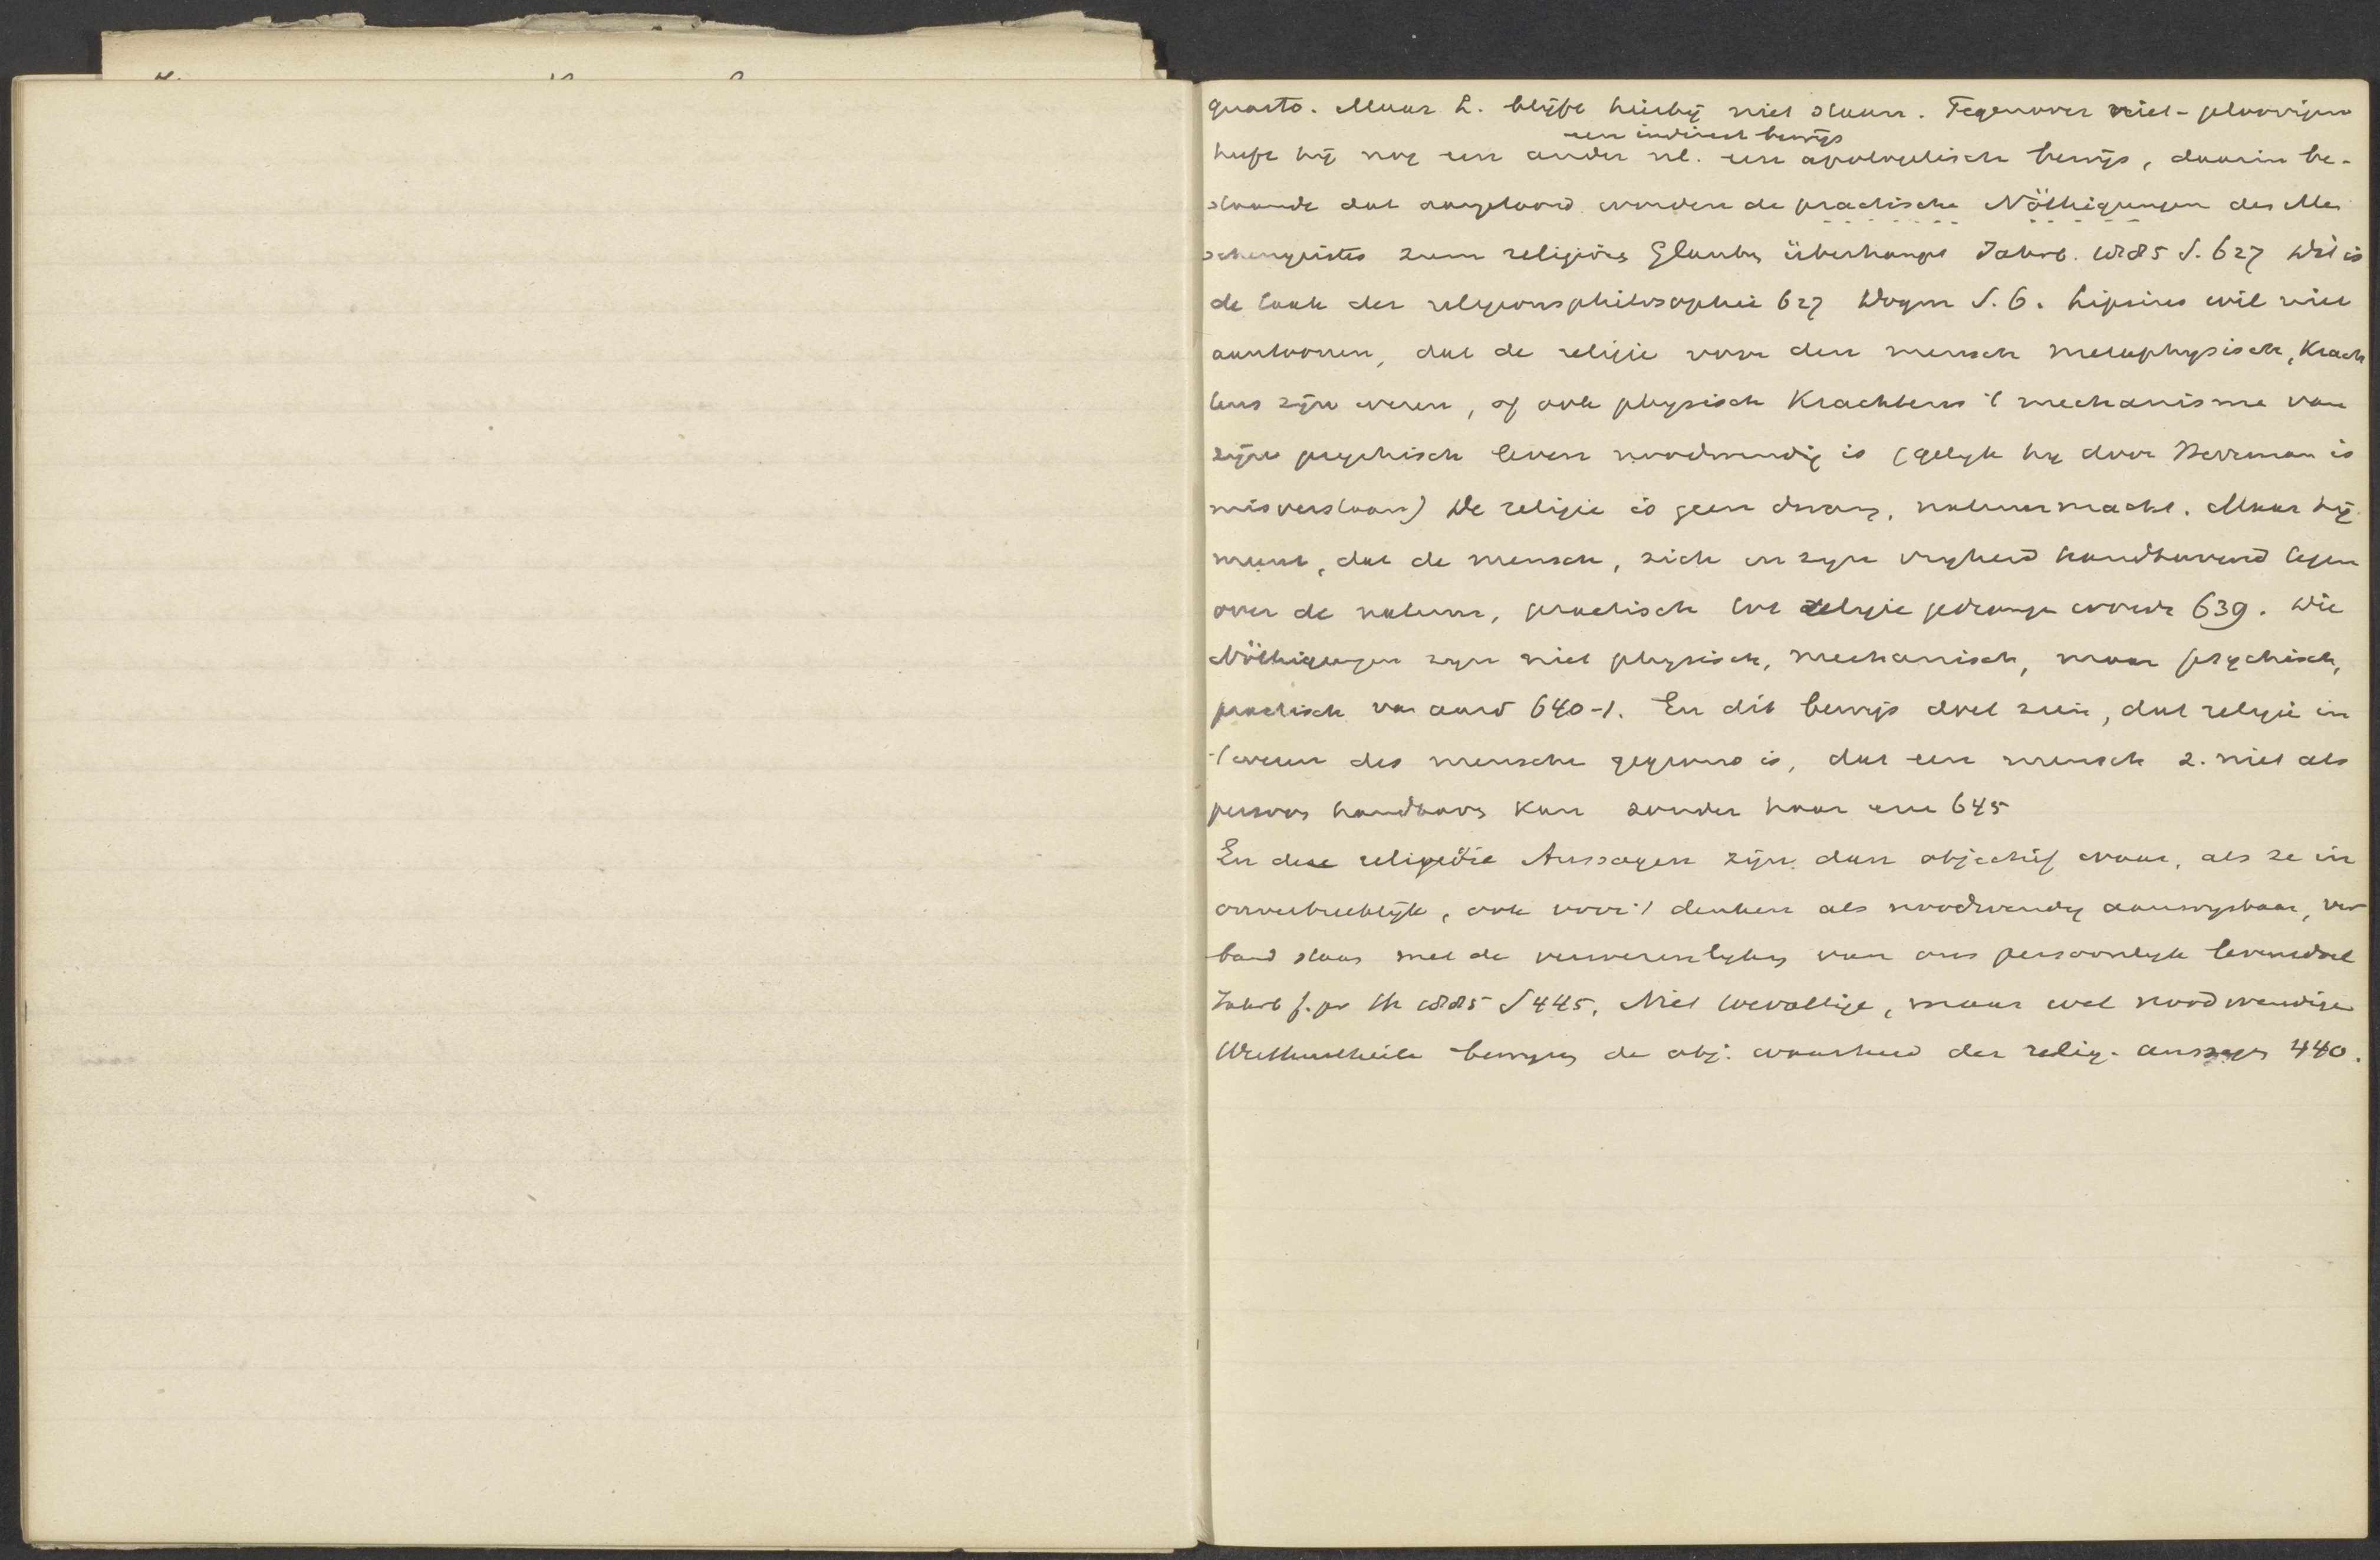 quarto. Maar L. blijft hierbij niet staan. Tegenover niet-geloovigen
een indirect bewijs
heeft hij nog een ander nl. een apologetisch bewijs, daarin be-
staande dat aangetoond worden de practische Nöthigungen des Men
schengeistes zum religiös Glauben überhaupt Jahrb. 1885 S. 627 Dit is
de taak der religionsphilosophie 627 Dogm S. 6. Lipsius wil niet
aantoonen, dat de religie voor den mensch metaphysisch, krach
tens zijn wezen, of ook physisch krachtens 't mechanisme van
zijn psychisch leven noodwendig is (gelijk hij door Herrman is
misverstaan) De religie is geen dwang, natuurmacht. Maar hij
meent, dat de mensch, zich en zijn vrijheid handhavend tegen
over de natuur, practisch tot religie gedrongen wordt 639. Die
Nöthigungen zijn niet physisch, mechanisch, maar psychisch,
practisch van aard 640-1. En dit bewijs doet zien, dat religie in
't wezen des menschen gegrond is, dat een mensch z. niet als
persoon handhaven kan zonder haar 645
En deze religiöse Aussagen zijn dan objectief waar, als ze in
onverbreeklijk, ook voor 't denken als noodwendig aanwijsbaar, ver
band staan met de verwezenlijking van ons persoonlijk levensdoel
Jahrb f. pr Th 1885 S 445. Niet toevallige, maar wel noodwendige
Werthurtheile bewijzen de obj. waarheid der relig. aussagen 440.